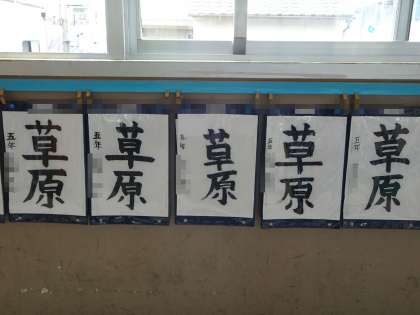 五年
草原
五年
草原
五年
草原
五年
草原
五年
草原